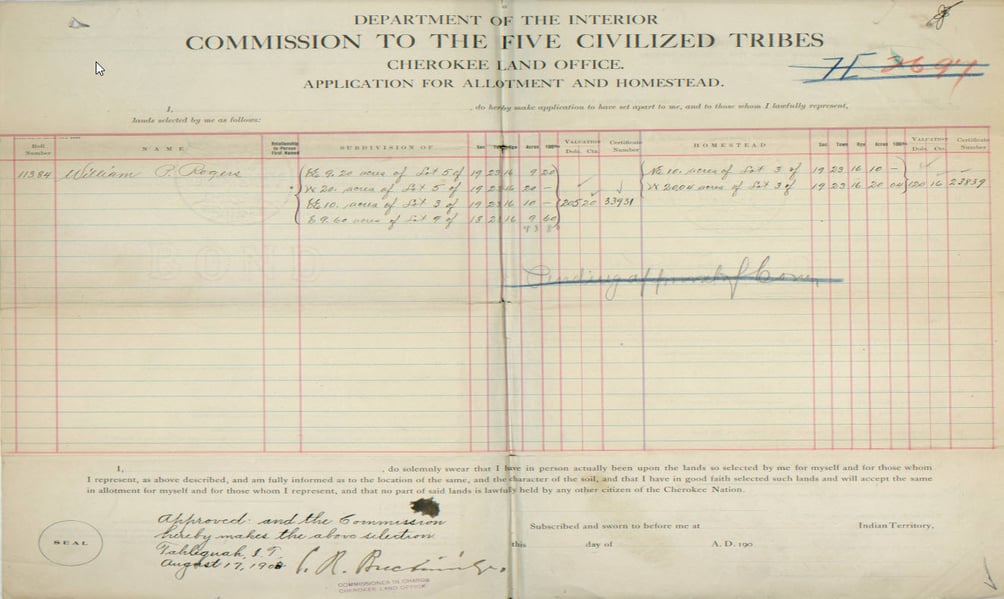 DEPARTMENT OF THE INTERIOR
COMMISSION TO THE FIVE CIVILIZED TRIBES
CHEROKEE LAND OFFICE.
APPLICATION FOR ALLOTMENT AND HOMESTEAD.
I, , do hereby make application to have set apart to me, and to those whom I lawfully represent,
lands selected by me as follows:
Roll Number NAME Relationship to Person First Named SUBDIVISION OF Sec Town Rge Acres 100ths VALUATION Dols. Cts. Certificate Number HOMESTEAD Sec Town Rge Acres 100ths VALUATION Dols. Cts. Certificate Number
11384 William P. Rogers 9.20 acres of Lot 5 of 19 23 16 9 20 10. acres of Lot 3 of 19 23 16 10 -
20. acres of Lot 5 of 19 23 16 20 - 20.04 acres of Lot 3 of 19 23 16 20 04 120 16 23839
10. acres of Lot 3 of 19 23 16 10 - 205 20 33931
9.60 acres of Lot 9 of 18 23 16 9 60
Pending approval of Com
I, , do solemnly swear that I have in person actually been upon the lands so selected by me for myself and for those whom
I represent, as above described, and am fully informed as to the location of the same, and the character of the soil, and that I have in good faith selected such lands and will accept the same
in allotment for myself and for those whom I represent, and that no part of said lands is lawfully held by any other citizen of the Cherokee Nation.
SEAL
Approved: and the Commission
hereby makes the above selection.
Tahlequah, I.T.
August 17, 190
COMMISSIONER IN CHARGE
CHEROKEE LAND OFFICE.
Subscribed and sworn to before me at Indian Territory,
this day of A.D. 190